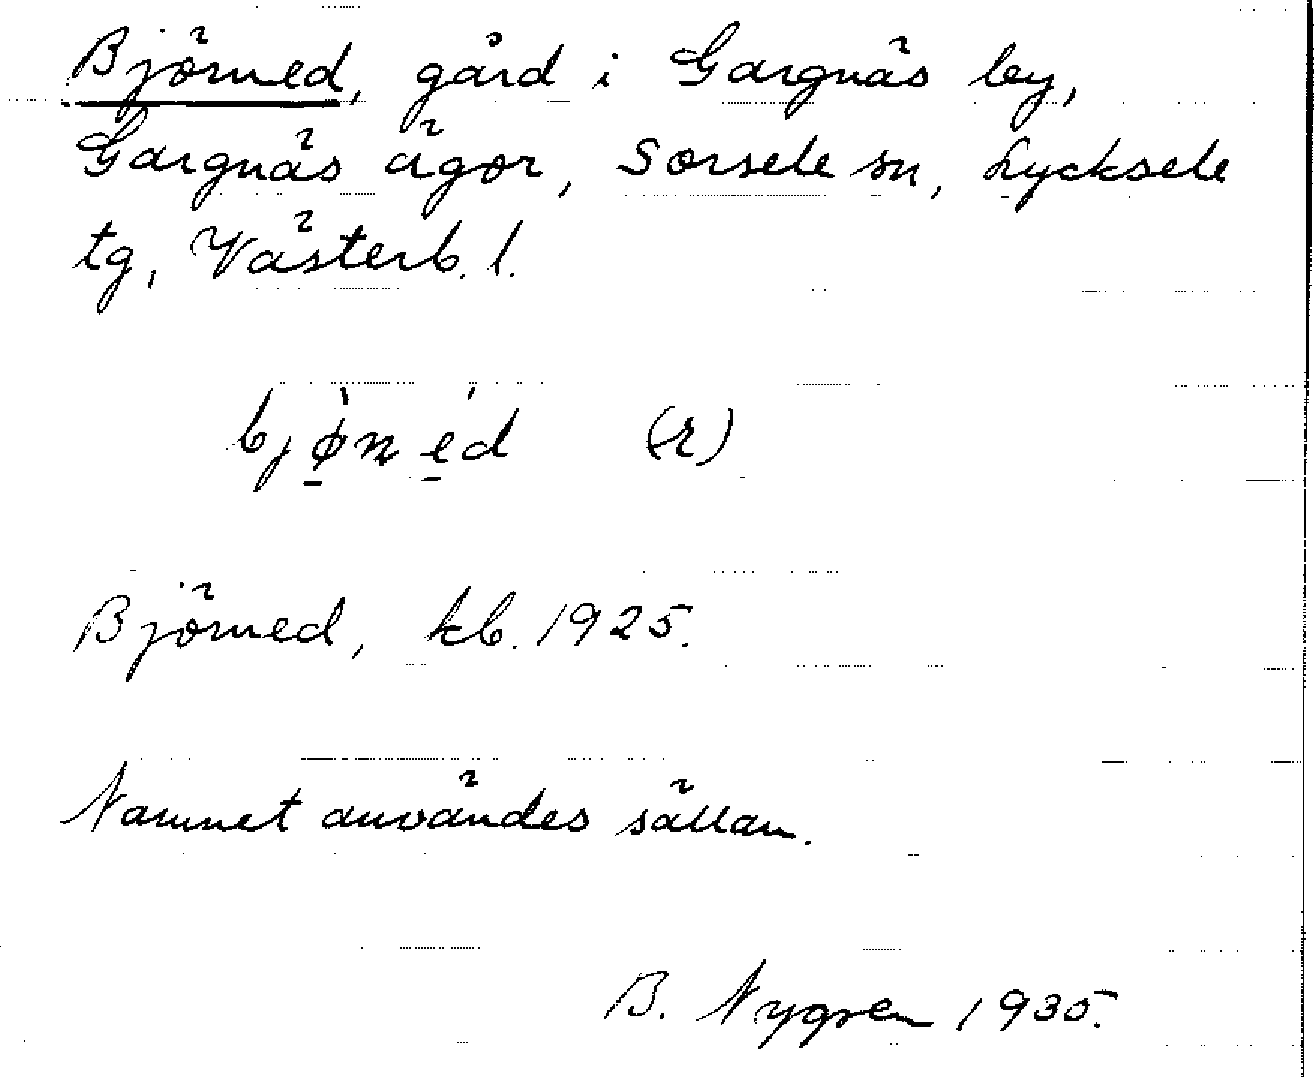 Björned, gård i Gargnäs by,
Gargnäs ägor, Sorsele sn, Lycksele
tg, Västerb. l.
bjø̱̀né̱d (r)
Björned, kb. 1925.
Namnet användes sällan.
B. Nygren 1935.